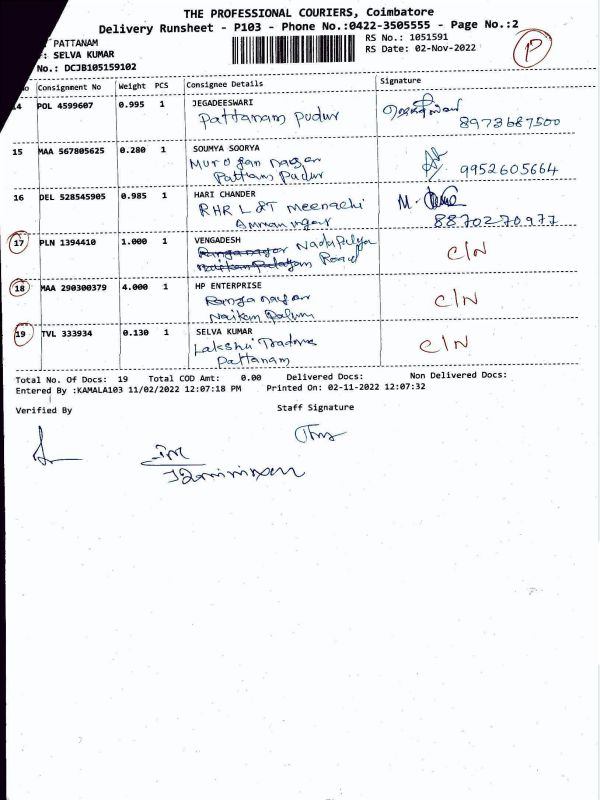 THE PROFESSIONAL COURIERS, Coimbatore
Delivery Runsheet - P103 - Phone No.:0422-3505555 - Page No.:2
PATTANAM
RS No.: 1051591
: SELVA KUMAR
RS Date: 02-Nov-2022
No.: DCJB105159102
P
No Consignment No Weight PCS Consignee Details Signature
14 POL 4599607 0.995 1 JEGADEESWARI
Pattanam pudur
8973687500
15 MAA 567805625 0.280 1 SOUMYA SOORYA
Murogan nagar
Pattam Pudur
9952605664
16 DEL 528545905 0.985 1 HARI CHANDER
RHR L &T meenachi
Amman nagar
M.
8870270977
17 PLN 1394410 1.000 1 VENGADESH
Road
C/N
18 MAA 290300379 4.000 1 HP ENTERPRISE
Ranga nagar
C/N
19 TVL 333934 0.130 1 SELVA KUMAR
Lakshi
Pattanam
C/N
Total No. Of Docs: 19 Total COD Amt: 0.00 Delivered Docs: Non Delivered Docs:
Entered By :KAMALA103 11/02/2022 12:07:18 PM Printed On: 02-11-2022 12:07:32
Verified By Staff Signature